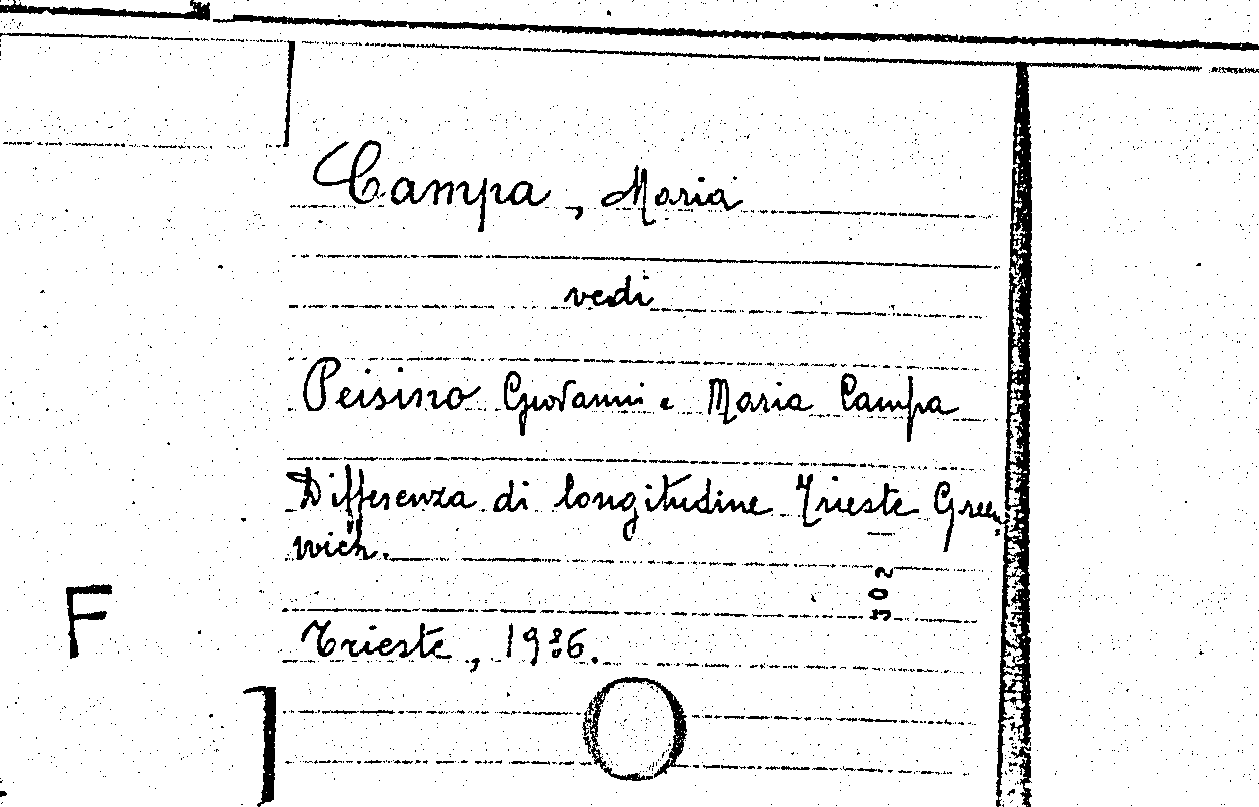 Campa, Maria
vedi
Peisino Giovanni e Maria Campa
Differenza di longitudine Trieste Green
wich.
302
Trieste, 1936.
F